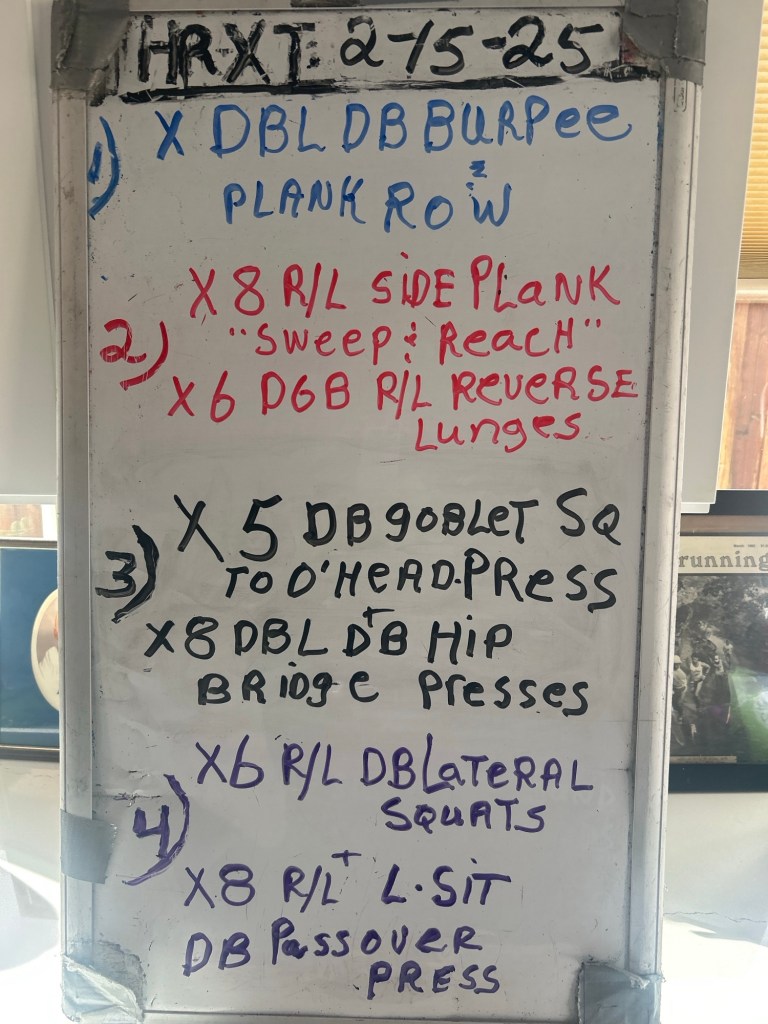 HR-XT: 2-15-25
1) X DBL DB BURPee
& PLANK ROW
X 8 R/L SiDE PLaNK
2) "Sweep & ReacH"
X 6 DGB R/L ReveRSE
Lunges
X 5 DB goBLeT SQ
3) TO O'HeAD.PRess
+
X8 DBL DB HiP
BRidge Presses
X6 R/L DB LaTeRAL
SQuATS
4)
X8 R/L+ L-SiT
DB PassoveR
PRESS
running